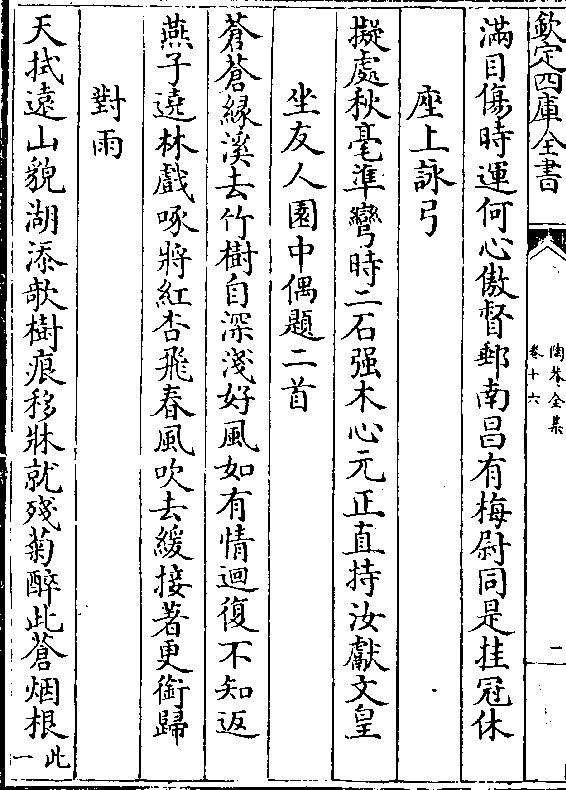 欽定四庫全書
陶菴全集
卷十六
二
滿目傷時運何心傲督郵南昌有梅尉同是挂冠休
座上詠弓
擬處秋毫準彎時二石强木心元正直持汝獻文皇
坐友人園中偶題二首
蒼蒼緣溪去竹樹自深淺好風如有情迴復不知返
燕子遶林戲啄將紅杏飛春風吹去緩接著更銜歸
對雨
天拭遠山貌湖添欹樹痕移牀就殘菊醉此蒼烟根
此
一